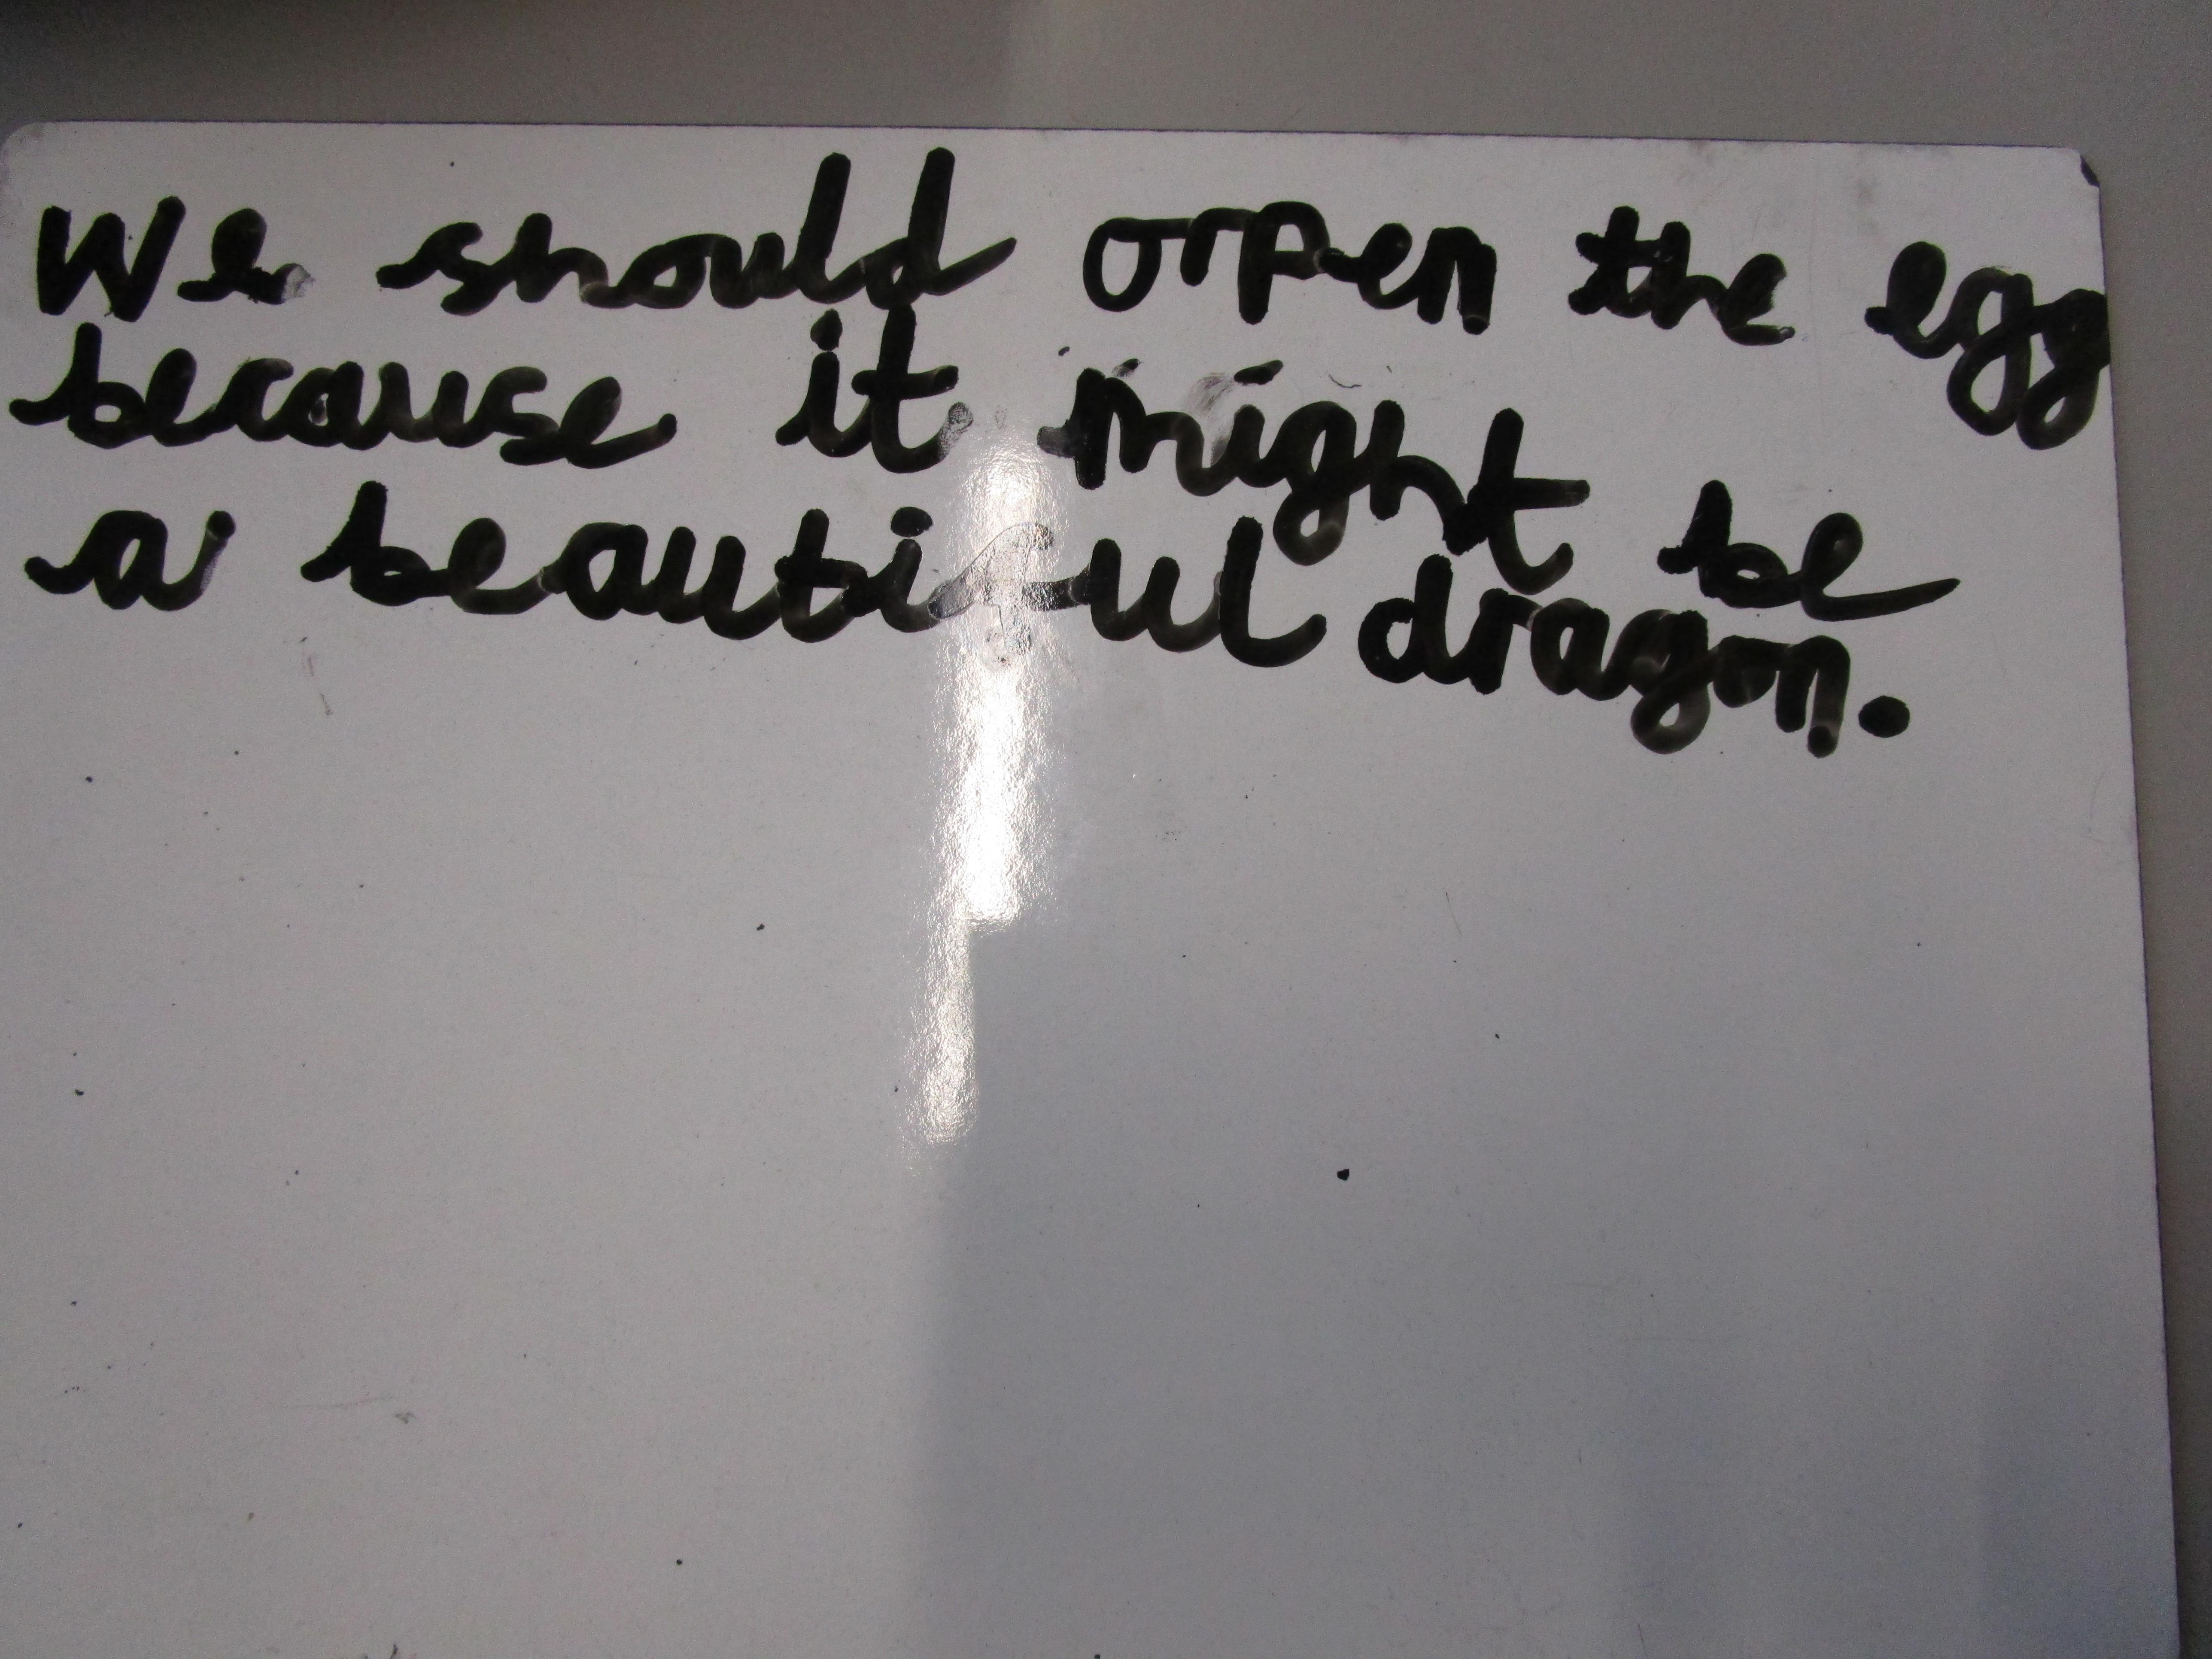 We should orpen the egg
because it might be
a beautiful dragon.